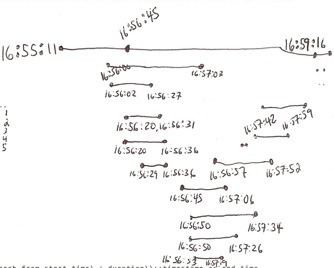 16:56:45
16:55:11
16:59:16
16:56:00 16:57:03
16:56:02 16:56:27
1
2
3
4
5
16:56:20, 16:56:31
16:57:42 16:57:59
16:56:20 16:56:36
16:56:29 16:56:36
16:56:57 16:57:52
16:56:45 16:57:06
16:56:50 16:57:34
16:56:50 16:57:26
start time) + duration